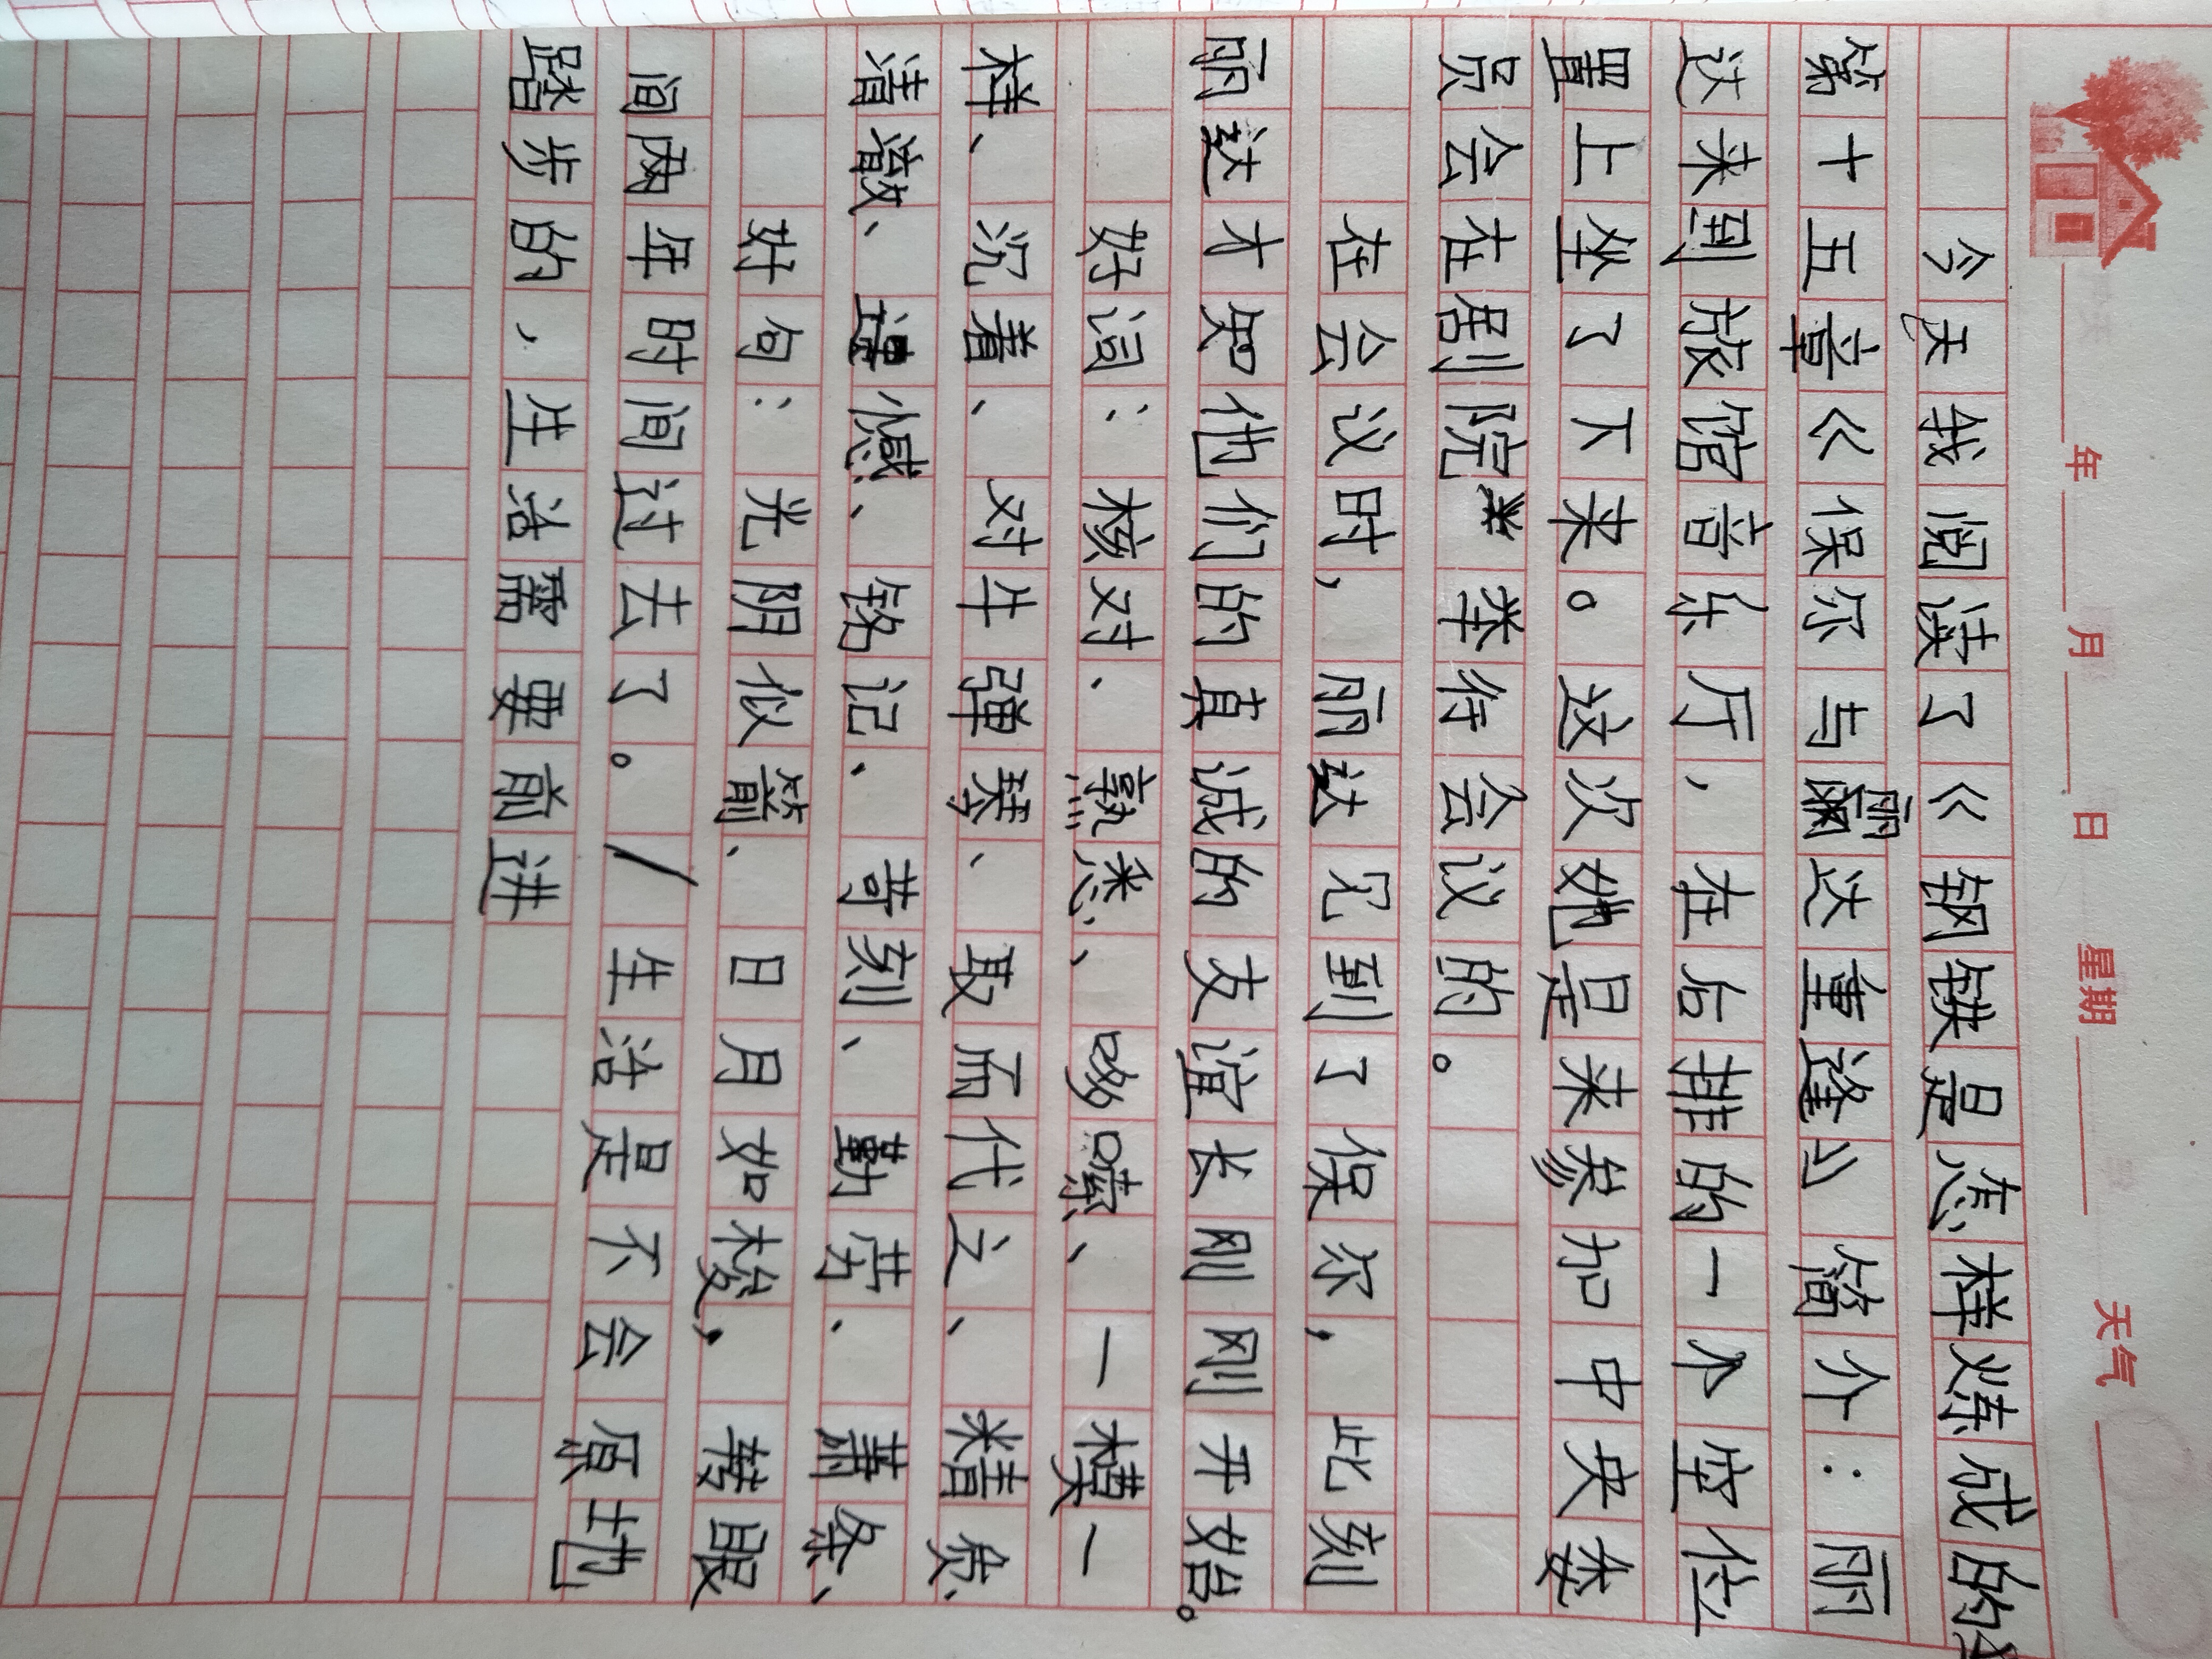 年 月 日 星期 天气
今天我阅读了《钢铁是怎样炼成的》
第十五章《保尔与丽达重逢》简介：丽
达来到旅馆音乐厅，在后排的一个空位
置上坐了下来。这次她是来参加中央委
员会在剧院举行会议的。
在会议时，丽达见到了保尔，此刻
丽达才知他们的真诚的友谊长刚刚开始。
好词：核对、熟悉、哆嗦、一模一
样、沉着、对牛弹琴、取而代之、
清澈、遗憾、铭记、苛刻、勤劳、萧条、
好句：光阴似箭、日月如梭，转眼
间两年时间过去了。/生活是不会原地
踏步的，生活需要前进